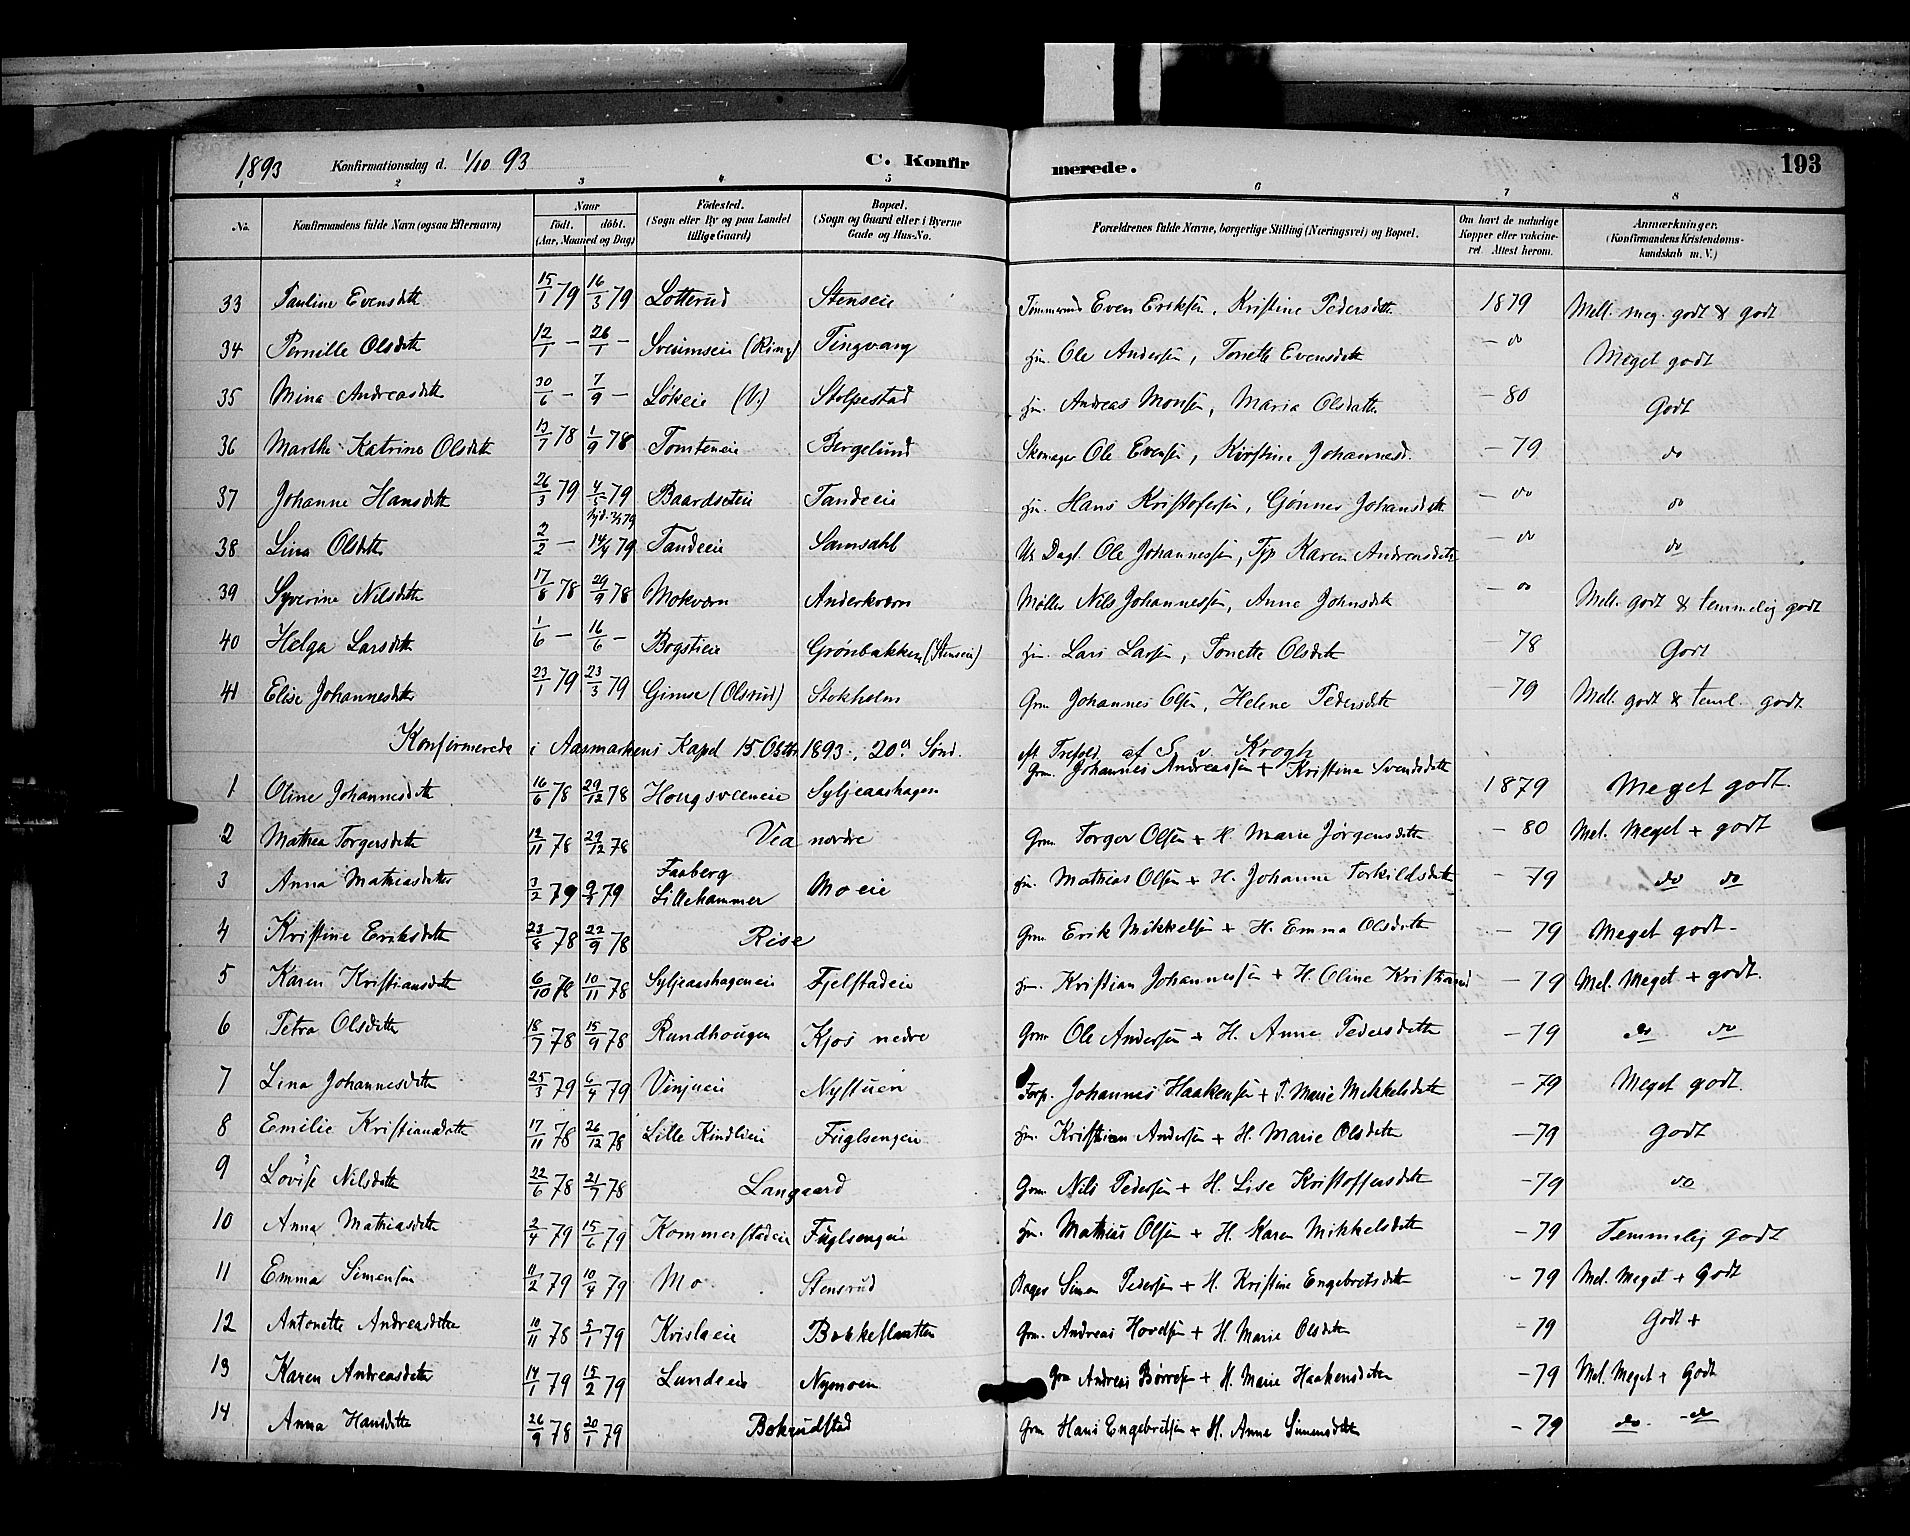 1893 Konfirmationsdag d. 1/10 93 C. Konfirmerede. 193
2 3 4 5 6 7 8
No. Konfirmandens fulde Navn (ogsaa Efternavn) Naar födt. döbt. (Aar, Maaned og Dag) Födested. (Sogn eller By og paa Landet tillige Gaard) Bopæl. (Sogn og Gaard eller i Byerne Gade og Hus-No. Forældrenes fulde Navne, borgerlige Stilling (Næringsvei) og Bopæl. Om havt de naturlige Kopper eller vakcineret. Attest herom. Anmærkninger. (Konfirmandens Kristendomskundskab m. V.)
33 Pauline Evensdtr 15/1 79 16/3 79 Lotterud Stenseie Tømmermd Even Eriksen, Kristine Pedersdtr 1879 Mell. meg. godt & godt
34 Pernille Olsdtr 12/1 – 26/1 – Sveumseie (Ring) Tingvang Hm. Ole Andersen, Tonette Evensdtr – do Meget godt
35 Mina Andreasdtr 30/6 – 7/9 – Løkeie (V.) Stolpestad Hm. Andreas Monsen, Maria Olsdatter – 80 Godt
36 Marthe Katrine Olsdtr 13/7 78 1/9 78 Tomteneie Bergelund Skomager Ole Evensen, Kirstine Johannesd. – 79 do
37 Johanne Hansdtr 26/3 79 4/5 79 Baardseteie Tandeeie Hm. Hans Kristofersen, Gønner Johansdtr – do do
38 Lina Olsdtr 2/2 – 14/4 79 Tandeeie Samsahl Uk Dagl. Ole Johannessen, Tjp Karen Andreasdatr – do do
39 Syverine Nilsdtr 17/8 78 29/9 78 Mokværn Anderkværn Møller Nils Johannessen, Anne Johnsdtr – do Mell. godt & temmelig godt
40 Helga Larsdtr 1/6 – 16/6 – Bogstieie Grønbakken (Stenseie) Hm. Lars Larsen, Tonette Olsdtr – 78 Godt
41 Elise Johannesdtr 23/1 79 23/3 79 Gimse (Olsrud) Stokholm Grm Johannes Olsen, Helene Pedersdtr – 79 Mell. godt & teml. godt
Konfirmerede i Aasmarkens Kapel 15 Obtbr 1893, 20de Sønd. eft. Trefold. af S. v. Krogh
1 Oline Johannesdtr 16/6 78 29/12 78 Hougsveeneie Syljeaashagen Grm. Johannes Andreassen + Kristina Svendsdtr 1879 Meget godt.
2 Mathea Torgersdtr 12/11 78 29/12 78 Vea nordre Grm. Torger Olsen + H. Marie Jørgensdtr – 80 Mel. Meget + godt
3 Anna Mathiasdatter 3/2 79 9/4 79 Faaberg Lillehammer Moeie Hm. Mathias Olsen + H. Johanne Torkildsdtr – 79 do do
4 Kristine Eriksdtr 23/8 78 22/9 78 Rise Grm. Erik Mikkelsen + H. Emma Olsdtr – 79 Meget godt –
5 Karen Kristiansdtr 6/10 78 10/11 78 Syljeaashageneie Fjelstadeie Hm. Kristian Johannessen + H. Oline Kristiansd – 79 Mel. Meget + godt.
6 Petra Olsdtr 18/7 78 15/9 78 Rundhougen Kjos nedre Grm Ole Andersen + H. Anne Pedersdtr – 79 do do
7 Lina Johannesdtr 25/3 79 6/4 79 Vinjueie Nystuen Torp. Johannes Haakensen + P. Marie Mikkelsdtr – 79 Meget godt.
8 Emilie Kristiansdtr 17/11 78 26/12 78 Lille Kindlieie Fuglsengeie Hm. Kristian Andersen + H. Marie Olsdtr – 79 godt
9 Lovise Nilsdtr 22/6 78 21/7 78 Langaard Grm. Nils Pedersen + H. Lise Kristoffersdtr – 79 do
10 Anna Mathiasdtr 2/4 79 15/6 79 Kommerstadeie Fuglsengeie Hm. Mathias Olsen + H. Karen Mikkelsdtr – 79 Temmelig godt
11 Emma Simensen 11/2 79 10/4 79 Mo Stensrud Bager Simen Pedersen + H. Kristine Engebretsdtr – 79 Mel. Meget + Godt
12 Antonette Andreasdtr 10/11 78 5/1 79 Krislaeie Bakkesletten Grm. Andreas Hovelsen + H. Marie Olsdtr – 79 Godt +
13 Karen Andreasdtr 14/1 79 15/2 79 Lundeeie Nymoen Grm Andreas Børresen + H. Marie Haakensdtr – 79 Mel. Meget + Godt
14 Anna Hansdtr 26/9 78 20/1 79 Bokrudstad Grm Hans Engebretsen + H. Anne Simensdtr – 79 do – do